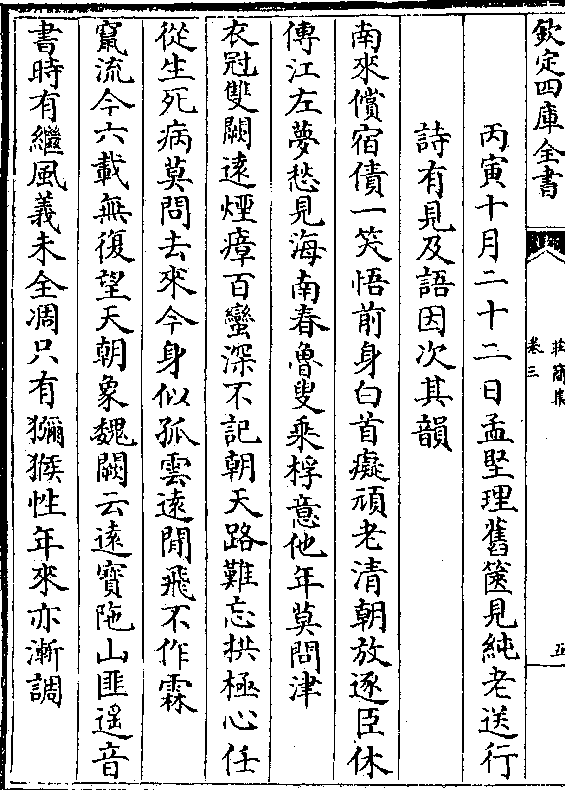 欽定四庫全書
莊簡集
卷三
五
丙寅十月二十二日孟堅理舊篋見純老送行
詩有見及語因次其韻
南來償宿債一笑悟前身白首癡頑老清朝放逐臣休
傳江左夢愁見海南春魯叟乘桴意他年莫問津
衣冠雙闕逺煙瘴百蠻深不記朝天路難忘拱極心任
從生死病莫問去來今身似孤雲逺閒飛不作霖
竄流今六載無復望天朝象魏闕云逺寳陁山匪遥音
書時有繼風義未全凋只有獼猴性年來亦漸調